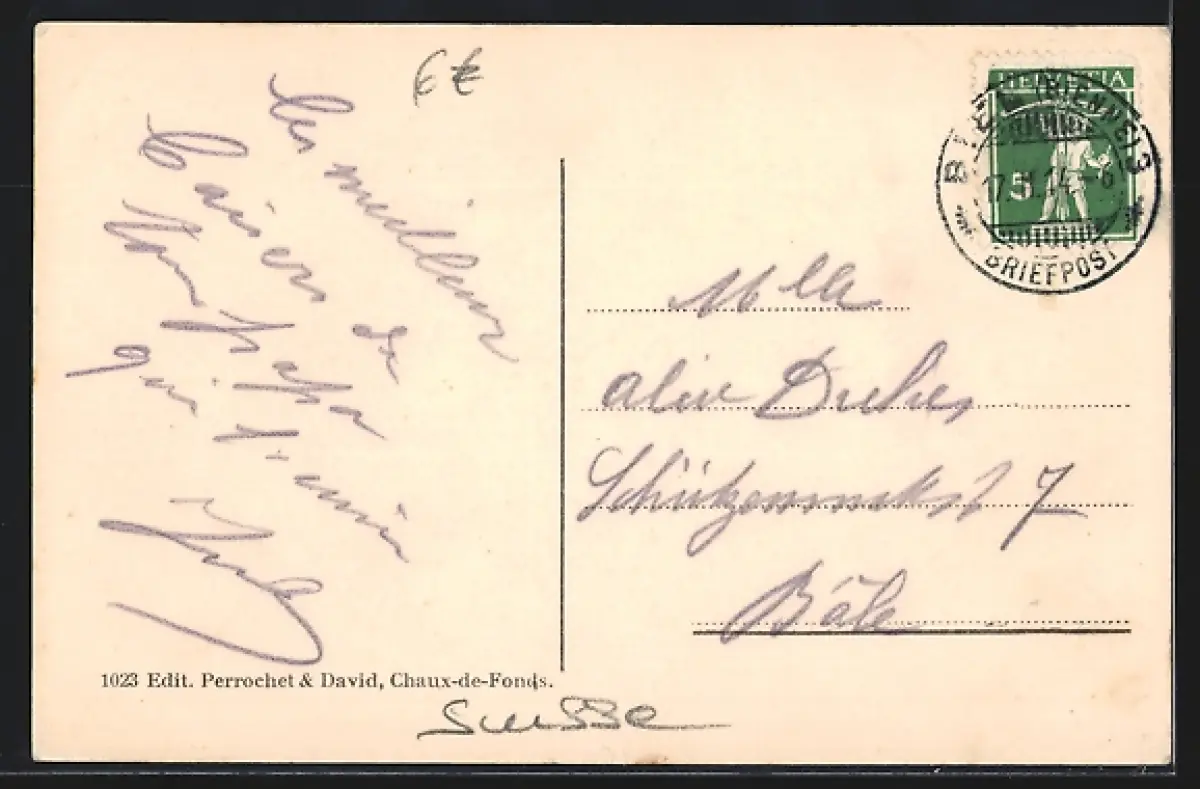 6 €
Les meilleurs
baisers de
ton papa
qui t'aime
HELVETIA
5
BIEL (BIENNE) 3
BRIEFPOST
Mlle
Schützenmattst 7
Bâle
1023 Edit. Perrochet & David, Chaux-de-Fonds.
Suisse